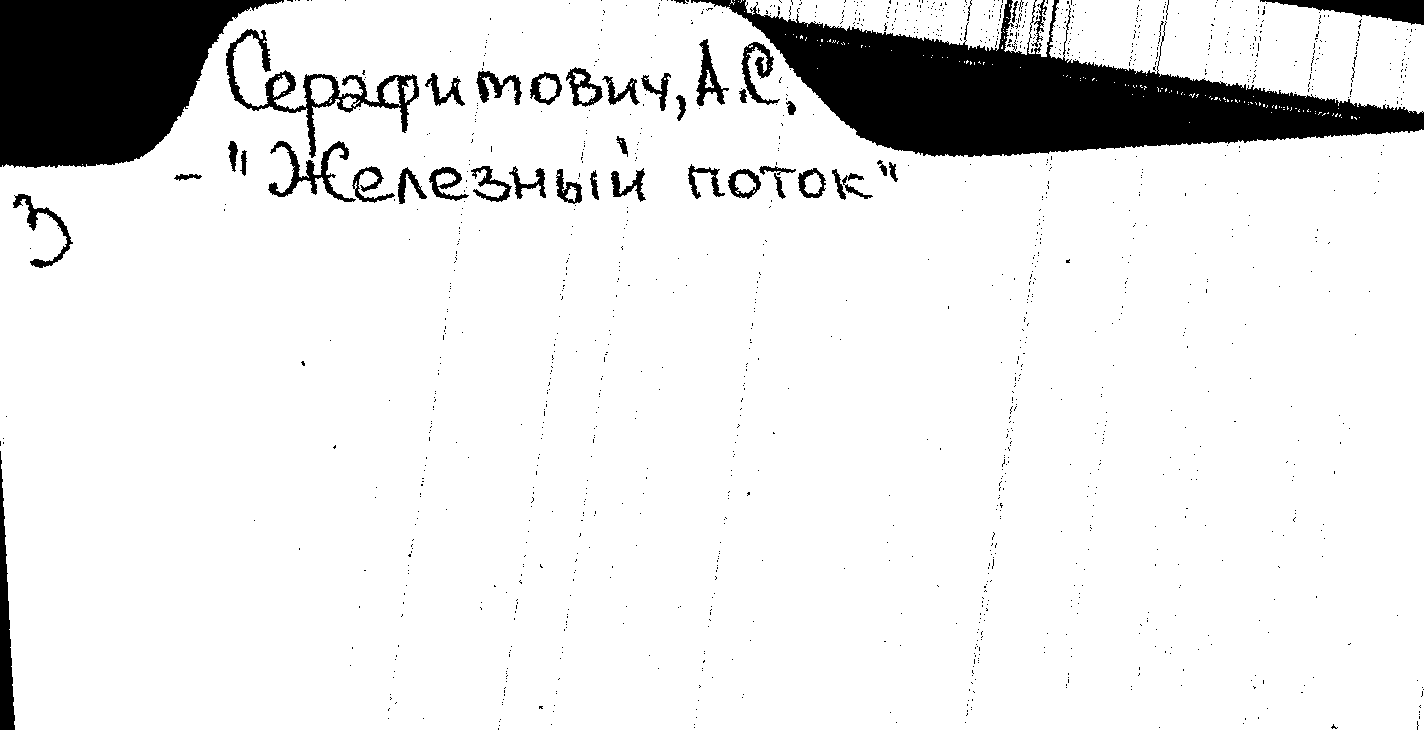 Серафимович, А.С.
- "Железный поток"
З